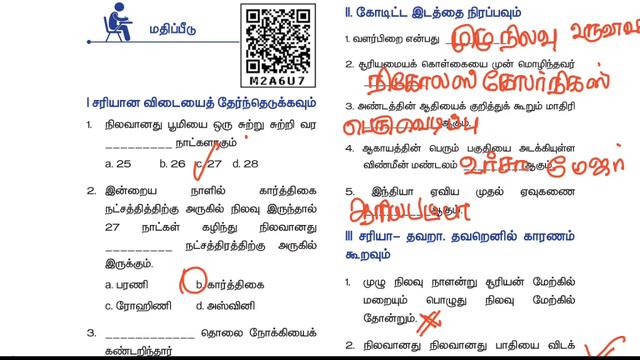 மதிப்பீடு
M2A6U7
I சரியான விடையைத் தேர்ந்தெடுக்கவும்
1. நிலவானது பூமியை ஒரு சுற்று சுற்றி வர
_________ நாட்களாகும்
a. 25 b. 26 c. 27 d. 28
2. இன்றைய நாளில் கார்த்திகை
நட்சத்தித்திற்கு அருகில் நிலவு இருந்தால்
27 நாட்கள் கழிந்து நிலவானது
_________ நட்சத்திரத்திற்கு அருகில்
இருக்கும்.
a. பரணி b. கார்த்திகை
c. ரோஹிணி d. அஸ்வினி
3. ____________ தொலை நோக்கியைக்
கண்டறிந்தார்
II. கோடிட்ட இடத்தை நிரப்பவும்
1. வளர்பிறை என்பது முழு நிலவு
2. சூரியமையக் கொள்கையை முன் மொழிந்தவர்
நிகோலஸ் கோபர்நிகஸ்
3. அண்டத்தின் ஆதியைக் குறித்துக் கூறும் மாதிரி
பெருவெடிப்பு ஆகும்.
4. ஆகாயத்தின் பெரும் பகுதியை அடக்கியுள்ள
விண்மீன் மண்டலம் உர்சா மேஜர் ஆகும்.
5. இந்தியா ஏவிய முதல் ஏவுகணை
ஆரியபட்டா ஆகும்.
III சரியா– தவறா. தவறெனில் காரணம்
கூறவும்
1. முழு நிலவு நாளன்று சூரியன் மேற்கில்
மறையும் பொழுது நிலவு மேற்கில்
தோன்றும்.
2. நிலவானது நிலவானது பாதியை விடக்